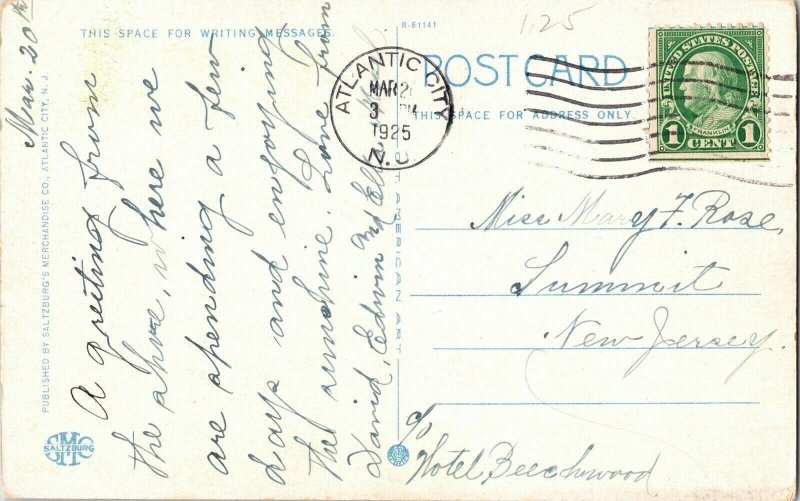 THIS SPACE FOR WRITING MESSAGES.
R-61141
1.25
POST CARD
THIS SPACE FOR ADDRESS ONLY
ATLANTIC CITY
MAR 2
3 PM
1925
N.J.
UNITED STATES POSTAGE
FRANKLIN
1 CENT 1
Mar. 20th
A greeting from
the above, where we
are spending a few
days and enjoying
the sunshine. Love from
David, Edwin and
Miss Mary F. Rose,
Summit
New Jersey.
c/o
Hotel Beechwood
PUBLISHED BY SALTZBURG'S MERCHANDISE CO., ATLANTIC CITY, N. J.
SMC
SALTZBURG
AMERICAN ART